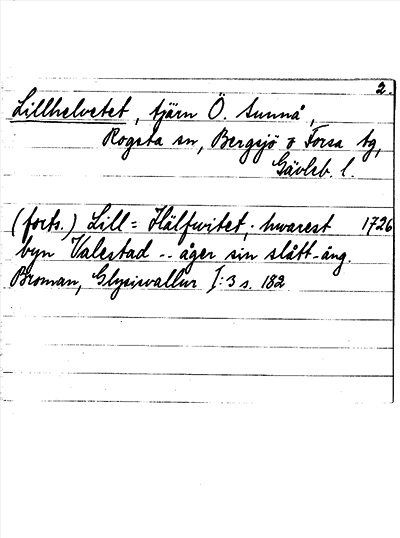 2.
Lillhelvetet, tjärn Ö. Sunnå,
Rogsta sn, Bergsjö o Forsa tg,
Gävleb. l.
(forts.) Lill= Hälfwitet, hwarest 1726
byn Valestad -- åger sin slått-äng.
Broman, Glysisvallur I:3 s. 182